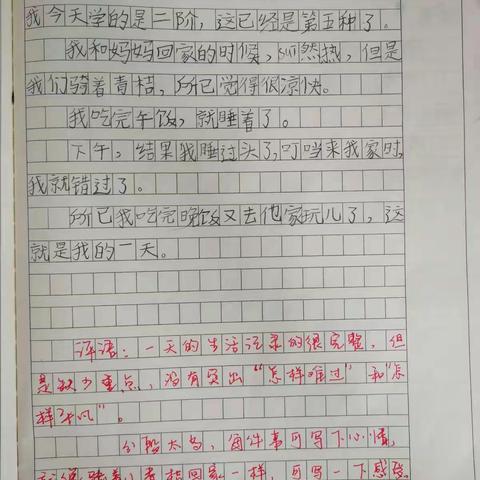 我今天学的是二阶，这已经是第五种了。
我和妈妈回家的时候，虽然热，但是
我们骑着青桔，所已觉得很凉快。
我吃完午饭，就睡着了。
下午，结果我睡过头了，叮当来我家时，
我就错过了。
所已我吃完晚饭又去他家玩儿了，这
就是我的一天。
评语：一天的生活记录的很完整，但
是缺少重点，没有突出“怎样难过”和“怎
样
分段太多，每件事可写下心情，
青桔回家一样，可写一下感受